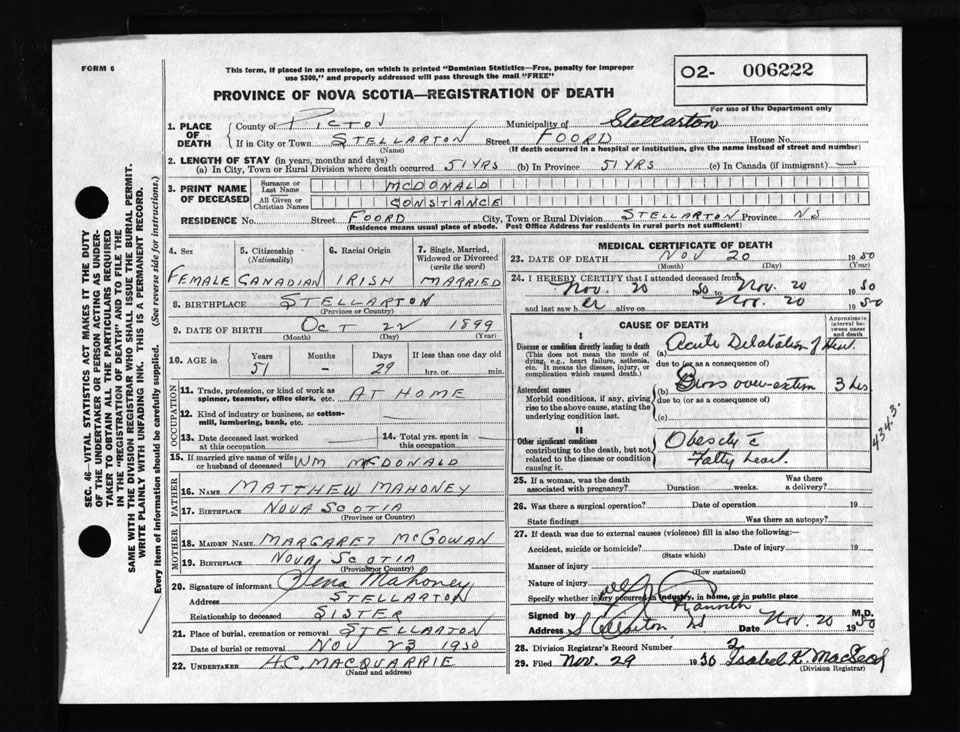 FORM 6
This form, if placed in an envelope, on which is printed "Dominion Statistics—Free, penalty for improper
use $300," and properly addressed will pass through the mail "FREE"
O2- 006222
For use of the Department only
PROVINCE OF NOVA SCOTIA—REGISTRATION OF DEATH
1. PLACE OF DEATH County of PICTOU Municipality of Stellarton
If in City or Town STELLARTON Street FOORD House No.
(Name) (If death occurred in a hospital or institution, give the name instead of street and number)
2. LENGTH OF STAY (in years, months and days)
(a) In City, Town or Rural Division where death occurred 51 YRS (b) In Province 51 YRS (c) In Canada (if immigrant) —
3. PRINT NAME OF DECEASED Surname or Last Name MCDONALD
All Given or Christian Names CONSTANCE
RESIDENCE No. Street FOORD City, Town or Rural Division STELLARTON Province NS
(Residence means usual place of abode. Post Office Address for residents in rural parts not sufficient)
4. Sex 5. Citizenship (Nationality) 6. Racial Origin 7. Single, Married, Widowed or Divorced (write the word)
FEMALE CANADIAN IRISH MARRIED
8. BIRTHPLACE STELLARTON
(Province or Country)
9. DATE OF BIRTH OCT 22 1899
(Month) (Day) (Year)
10. AGE in Years Months Days If less than one day old
51 - 29 hrs. or min.
OCCUPATION
11. Trade, profession, or kind of work as spinner, teamster, office clerk, etc. AT HOME
12. Kind of industry or business, as cotton-mill, lumbering, bank, etc.
13. Date deceased last worked at this occupation
14. Total yrs. spent in this occupation
15. If married give name of wife or husband of deceased WM MCDONALD
FATHER
16. NAME MATTHEW MAHONEY
17. BIRTHPLACE NOVA SCOTIA
(Province or Country)
MOTHER
18. MAIDEN NAME MARGARET MCGOWAN
19. BIRTHPLACE NOVA SCOTIA
(Province or Country)
20. Signature of informant Lena Mahoney
Address STELLARTON
Relationship to deceased SISTER
21. Place of burial, cremation or removal STELLARTON
Date of burial or removal NOV 23 1950
22. UNDERTAKER H.C. MACQUARRIE
(Name and address)
MEDICAL CERTIFICATE OF DEATH
23. DATE OF DEATH NOV 20 1950
(Month) (Day) (Year)
24. I HEREBY CERTIFY that I attended deceased from
Nov. 20 1950 to Nov. 20 1950
and last saw her alive on Nov. 20 1950
CAUSE OF DEATH
Approximate interval between onset and death
I
Disease or condition directly leading to death
(This does not mean the mode of dying, e.g., heart failure, asthenia, etc. It means the disease, injury, or complication which caused death.)
(a) Acute Dilatation of Heart.
due to (or as a consequence of)
Antecedent causes
Morbid conditions, if any, giving rise to the above cause, stating the underlying condition last.
(b) Gross over-extion 3 hrs
due to (or as a consequence of)
(c)
4343.
II
Other significant conditions
contributing to the death, but not related to the disease or condition causing it.
Obesity c̄
Fatty heart.
25. If a woman, was the death associated with pregnancy? Duration weeks. Was there a delivery?
26. Was there a surgical operation? Date of operation 19
State findings Was there an autopsy?
27. If death was due to external causes (violence) fill in also the following:—
Accident, suicide or homicide? Date of injury 19
(State which)
Manner of injury
(How sustained)
Nature of injury
Specify whether injury occurred in industry, in home, or in public place
Signed by M.D.
Address Stellarton NS Date Nov. 20 1950
28. Division Registrar's Record Number
29. Filed Nov. 29 1950 Isabel K. MacLeod
(Division Registrar)
SEC. 46—VITAL STATISTICS ACT MAKES IT THE DUTY
OF THE UNDERTAKER OR PERSON ACTING AS UNDER-
TAKER TO OBTAIN ALL THE PARTICULARS REQUIRED
IN THE "REGISTRATION OF DEATH" AND TO FILE THE
SAME WITH THE DIVISION REGISTRAR WHO SHALL ISSUE THE BURIAL PERMIT.
WRITE PLAINLY WITH UNFADING INK. THIS IS A PERMANENT RECORD.
Every item of information should be carefully supplied. (See reverse side for instructions.)